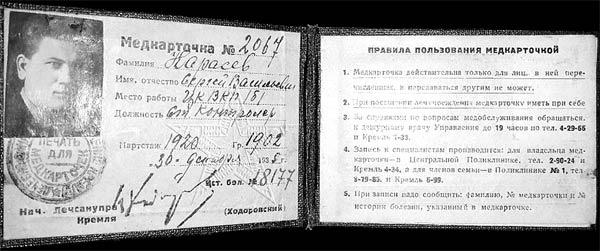 Медкарточка № 2067
Фамилия Карасев
Имя, отчество Сергей Васильевич
Место работы Цк ВКП(б)
Должность
Партстаж 1920 Гр 1902
30 декабря 1935 г.
Ист. бол. № 18177
Нач. Лечсанупра
Кремля
(Ходоровский)
ПЕЧАТЬ
ДЛЯ
МЕДКАРТОЧЕК
ПРАВИЛА ПОЛЬЗОВАНИЯ МЕДКАРТОЧКОЙ
1. Медкарточка действительна только для лиц, в ней пере-
численных, и передаваться другим не может.
2. При посещении лечучреждения медкарточку иметь при себе
3. За справками по вопросам медобслуживания обращаться
к дежурному врачу Управления до 19 часов по тел. 4-29-66
и Кремль 7-33.
4. Запись к специалистам производится: для владельца мед-
карточки—в Центральной Поликлинике, тел. 2-90-24 и
Кремль 4-34, а для членов семьи—в Поликлинике № 1, тел.
8-79-85, и Кремль 6-99.
5. При записи надо сообщить: фамилию, № медкарточки и №
истории болезни, указанный в медкарточке.